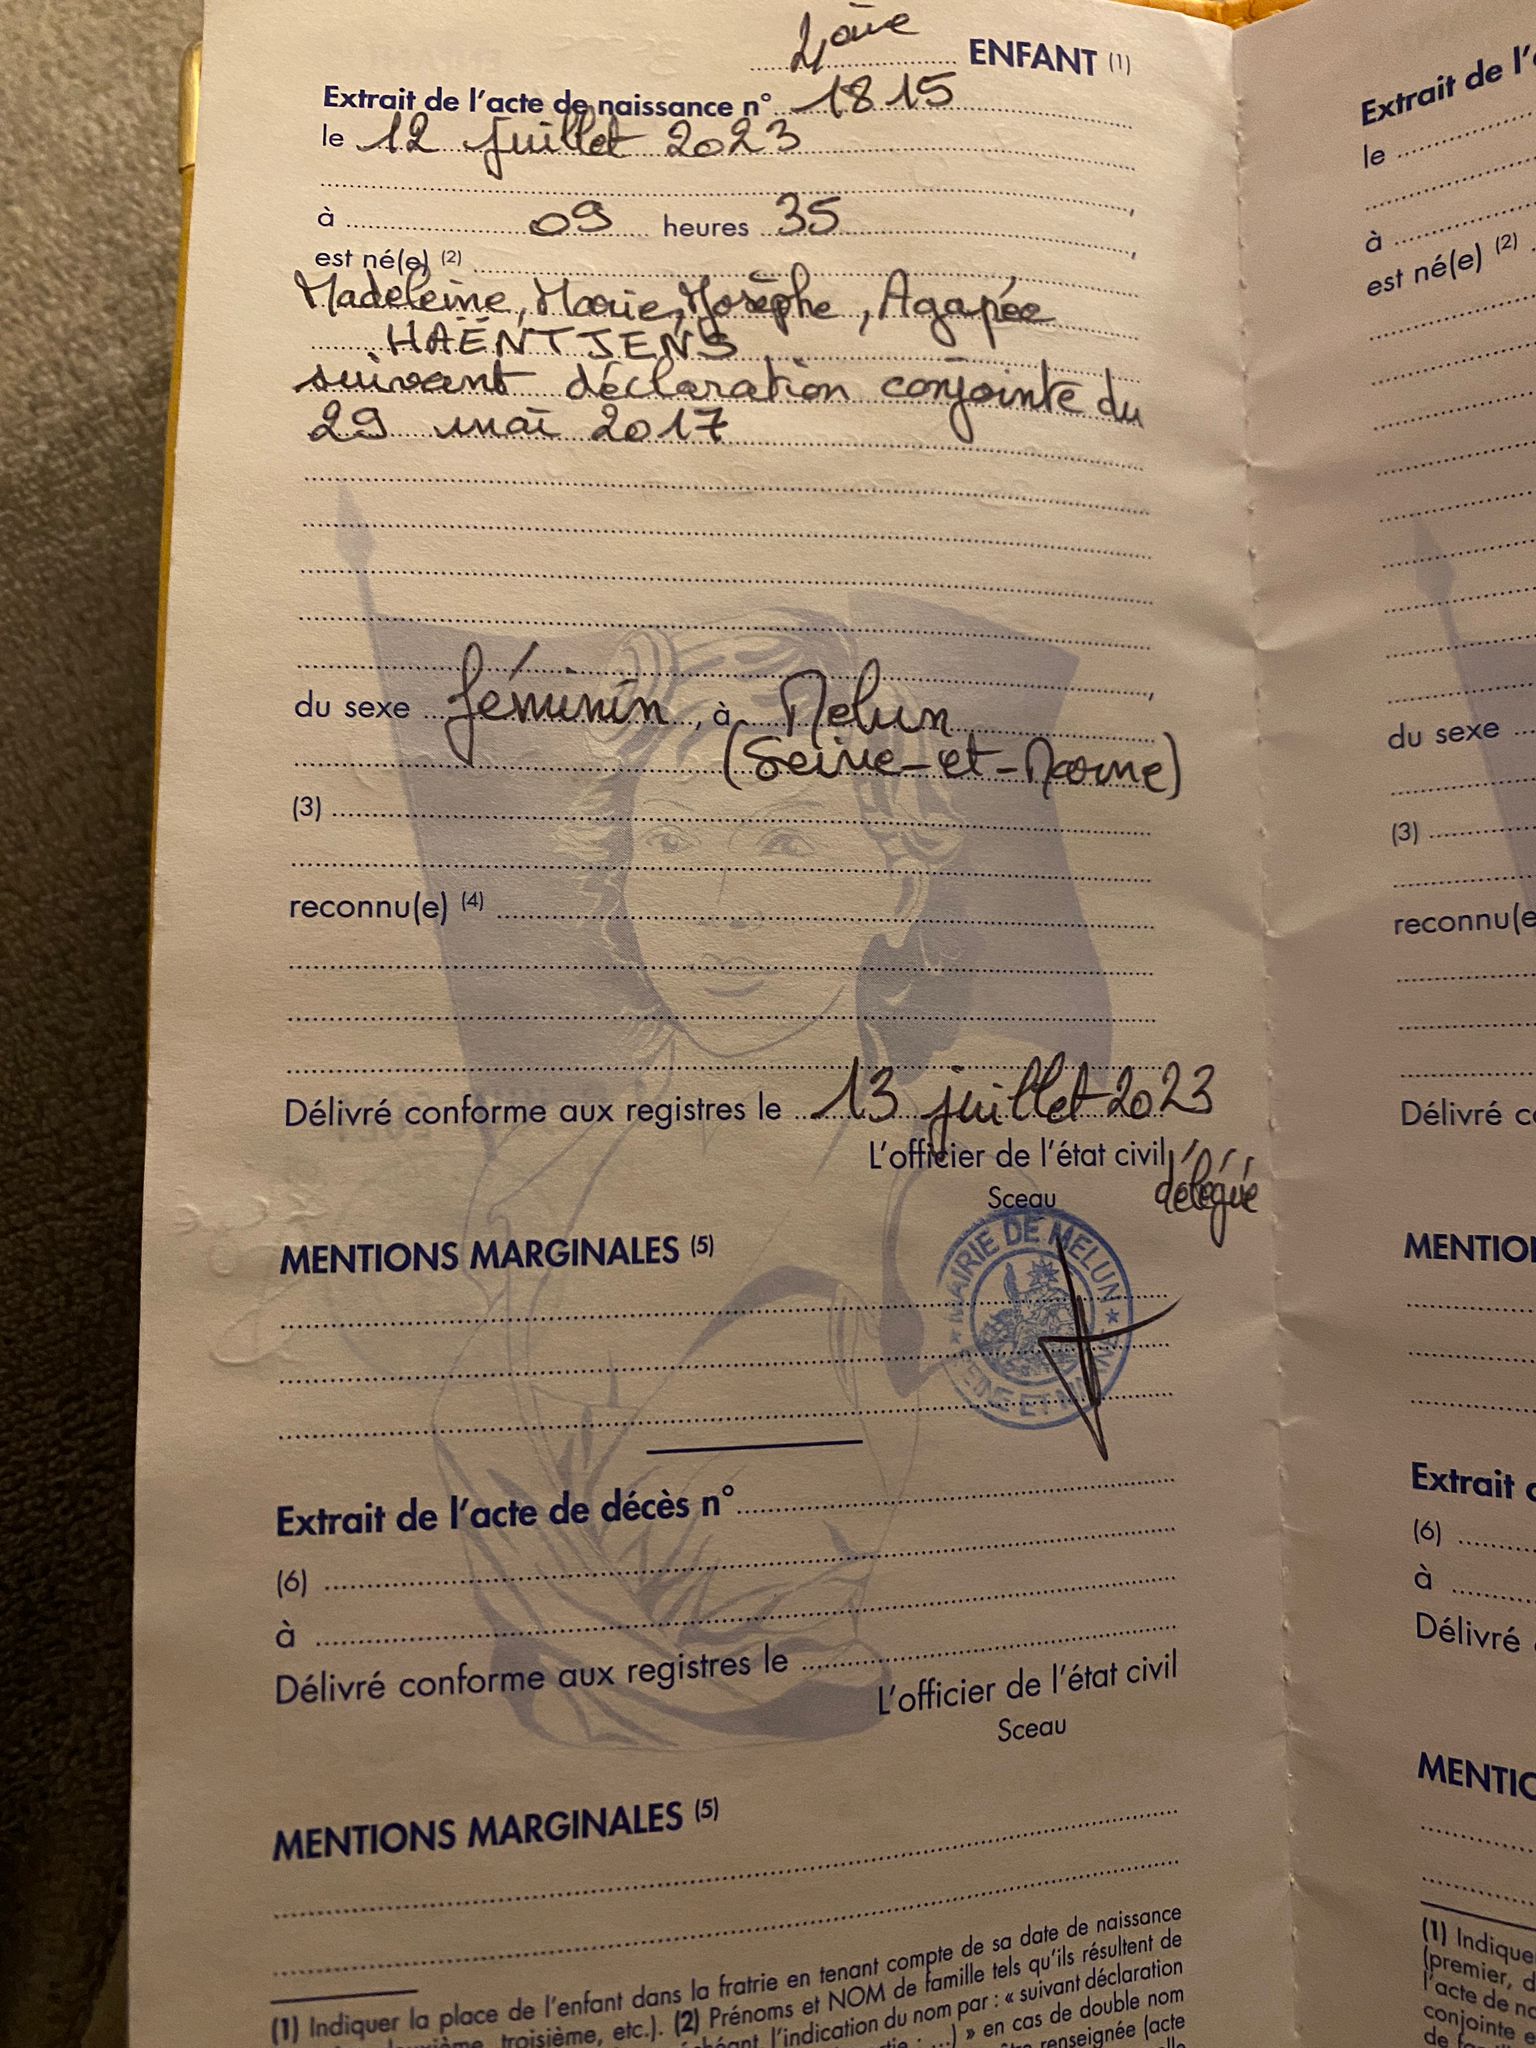 4ème ENFANT (1)
Extrait de l'acte de naissance n° 1815
le 12 juillet 2023
à 09 heures 35
est né(e) (2)
Madeleine, Marie, Josèphe, Agapée
HAËNTJENS
suivant déclaration conjointe du
29 mai 2017
du sexe féminin, à Melun
(Seine-et-Marne)
(3)
reconnu(e) (4)
Délivré conforme aux registres le 13 juillet 2023
L'officier de l'état civil délégué
Sceau
MAIRIE DE MELUN
SEINE ET MARNE
MENTIONS MARGINALES (5)
Extrait de l'acte de décès n°
(6)
à
Délivré conforme aux registres le
L'officier de l'état civil
Sceau
MENTIONS MARGINALES (5)
(1) Indiquer la place de l'enfant dans la fratrie en tenant compte de sa date de naissance
troisième, etc.). (2) Prénoms et NOM de famille tels qu'ils résultent de
l'indication du nom par : « suivant déclaration
» en cas de double nom
renseignée (acte
Extrait de
le
à
est né(e) (2)
du sexe
(3)
reconnu(e
Délivré
MENTIO
Extrait
(6)
à
Délivré
MENTIO
(1) Indique
(premier,
l'acte de
conjointe
de